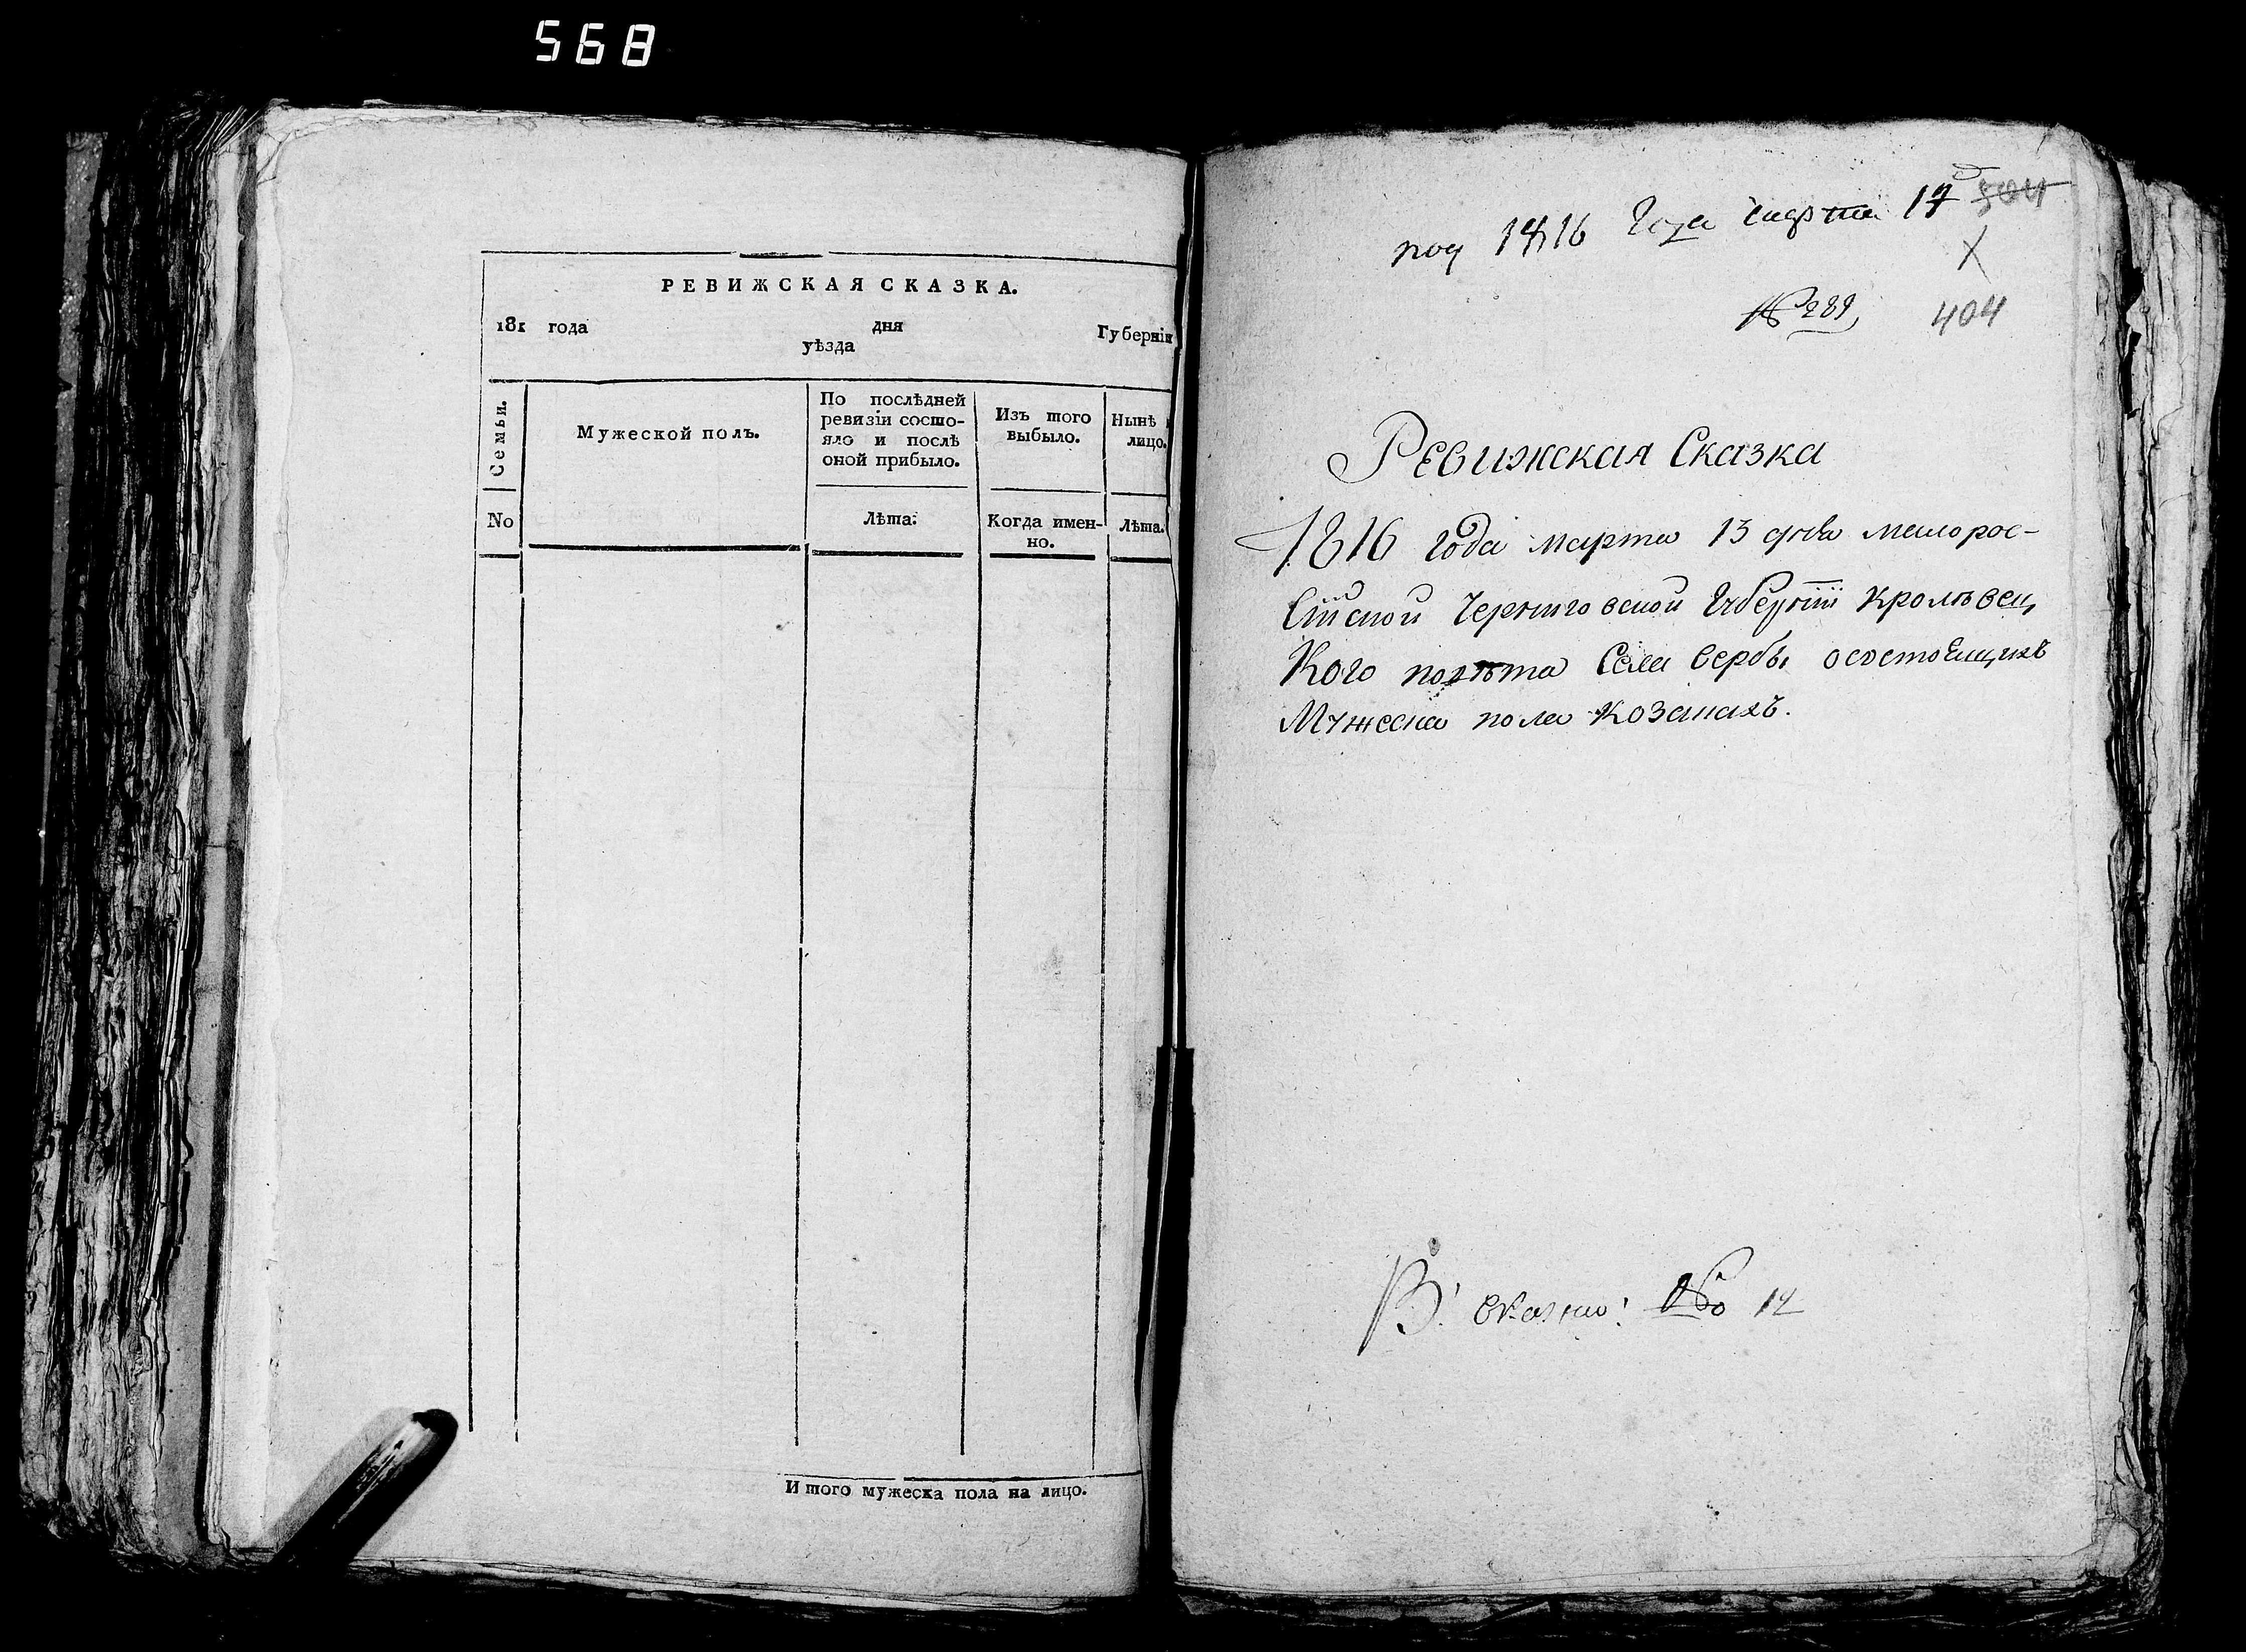 568
РЕВИЖСКАЯ СКАЗКА.
181 года дня Губерніи
уѣзда
Семьи.
Мужеской полъ.
По послѣдней
ревизіи состо-
яло и послѣ
оной прибыло.
Изъ того
выбыло.
Нынѣ
лицо.
No
Лѣта:
Когда имен-
но.
Лѣта.
Итого мужеска пола на лицо.
1816 Года 17
№ 289
404
Ревижская Сказка
1816 года марта 13 дня малорос-
сійской Черниговской Губерніи Кролѣвец
кого повѣта Села Вербы осостоящихъ
Мужеска пола козакахъ.
No 14